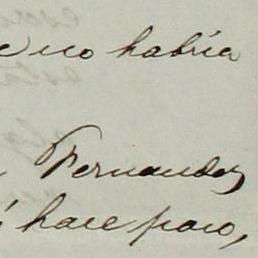 no habría
Fernandez
hace poco,